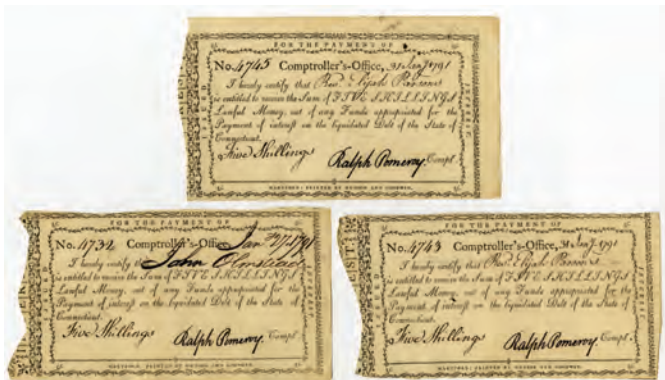 FOR THE PAYMENT OF
No. 4745 Comptroller's-Office, 31 Jany 1791
I hereby certify that Rev. Elijah Parsons
is entitled to receive the Sum of FIVE SHILLINGS
Lawful Money, out of any Funds appropriated for the
Payment of interest on the liquidated Debt of the State of
Connecticut.
Five Shillings Ralph Pomeroy, Compt.
ISSUED
INTEREST
HARTFORD: PRINTED BY HUDSON AND GOODWIN.
FOR THE PAYMENT OF
No. 4732 Comptroller's-Office, Jan 27 1791
I hereby certify that John Olmstead
is entitled to receive the Sum of FIVE SHILLINGS
Lawful Money, out of any Funds appropriated for the
Payment of interest on the liquidated Debt of the State of
Connecticut.
Five Shillings Ralph Pomeroy, Compt.
ISSUED
INTEREST
HARTFORD: PRINTED BY HUDSON AND GOODWIN.
FOR THE PAYMENT OF
No. 4743 Comptroller's-Office, 31 Jany 1791
I hereby certify that Rev. Elijah Parsons
is entitled to receive the Sum of FIVE SHILLINGS
Lawful Money, out of any Funds appropriated for the
Payment of interest on the liquidated Debt of the State of
Connecticut.
Five Shillings Ralph Pomeroy, Compt.
ISSUED
INTEREST
HARTFORD: PRINTED BY HUDSON AND GOODWIN.